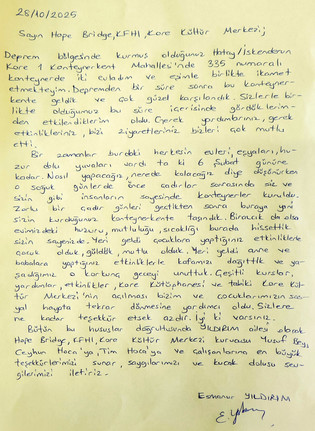 28/10/2025
Sayın Hope Bridge, KFHI, Kore Kültür Merkezi;
Deprem bölgesinde kurmuş olduğunuz Hatay/İskenderun
Kore 1 Konteynerkent Mahallesi'nde 335 numaralı
konteynerde iki evladım ve eşimle birlikte ikamet
etmekteyim. Depremden bir süre sonra bu konteyner-
kente geldik ve çok güzel karşılandık. Sizlerle bir-
likte olduğumuz bu süre içerisinde gördüklerim-
den etkilendiklerim oldu. Gerek yardımlarınız, gerek
etkinlikleriniz, bizi ziyaretleriniz bizleri çok mutlu
etti.
Bir zamanlar burdaki herkesin evleri, eşyaları, hu-
zur dolu yuvaları vardı ta ki 6 Şubat gününe
kadar. Nasıl yapacağız, nerede kalacağız diye düşünürken
o soğuk günlerde önce çadırlar sonrasında siz ve
sizin gibi insanların sayesinde konteynerler kuruldu.
Zorlu bir çadır günleri geçtikten sonra buraya yani
sizin kurduğunuz konteynerkente taşındık. Birazcık da olsa
evimizdeki huzuru, mutluluğu, sıcaklığı burada hissettik
sizin sayenizde. Yeri geldi çocuklara yaptığınız etkinliklerle
çocuk olduk, güldük mutlu olduk. Yeri geldi anne ve
babalara yaptığınız etkinliklerle kafamızı dağıttık ve ya-
şadığımız o korkunç geceyi unuttuk. Çeşitli kurslar,
yardımlar, etkinlikler, Kore Kütüphanesi ve tabiki Kore Kül-
tür Merkezi'nin açılması bizim ve çocuklarımızın sos-
yal hayata tekrar dönmesine yardımcı oldu. Sizlere
ne kadar teşekkür etsek azdır. İyi ki varsınız.
Bütün bu hususlar doğrultusunda YILDIRIM ailesi olarak
Hope Bridge, KFHI, Kore Kültür Merkezi kurucusu Yusuf Bey,
Ceyhun Hoca'ya, Tim Hoca'ya ve çalışanlarına en büyük
teşekkürlerimizi sunar, saygılarımızı ve kucak dolusu sev-
gilerimizi iletiriz.
Esmanur YILDIRIM